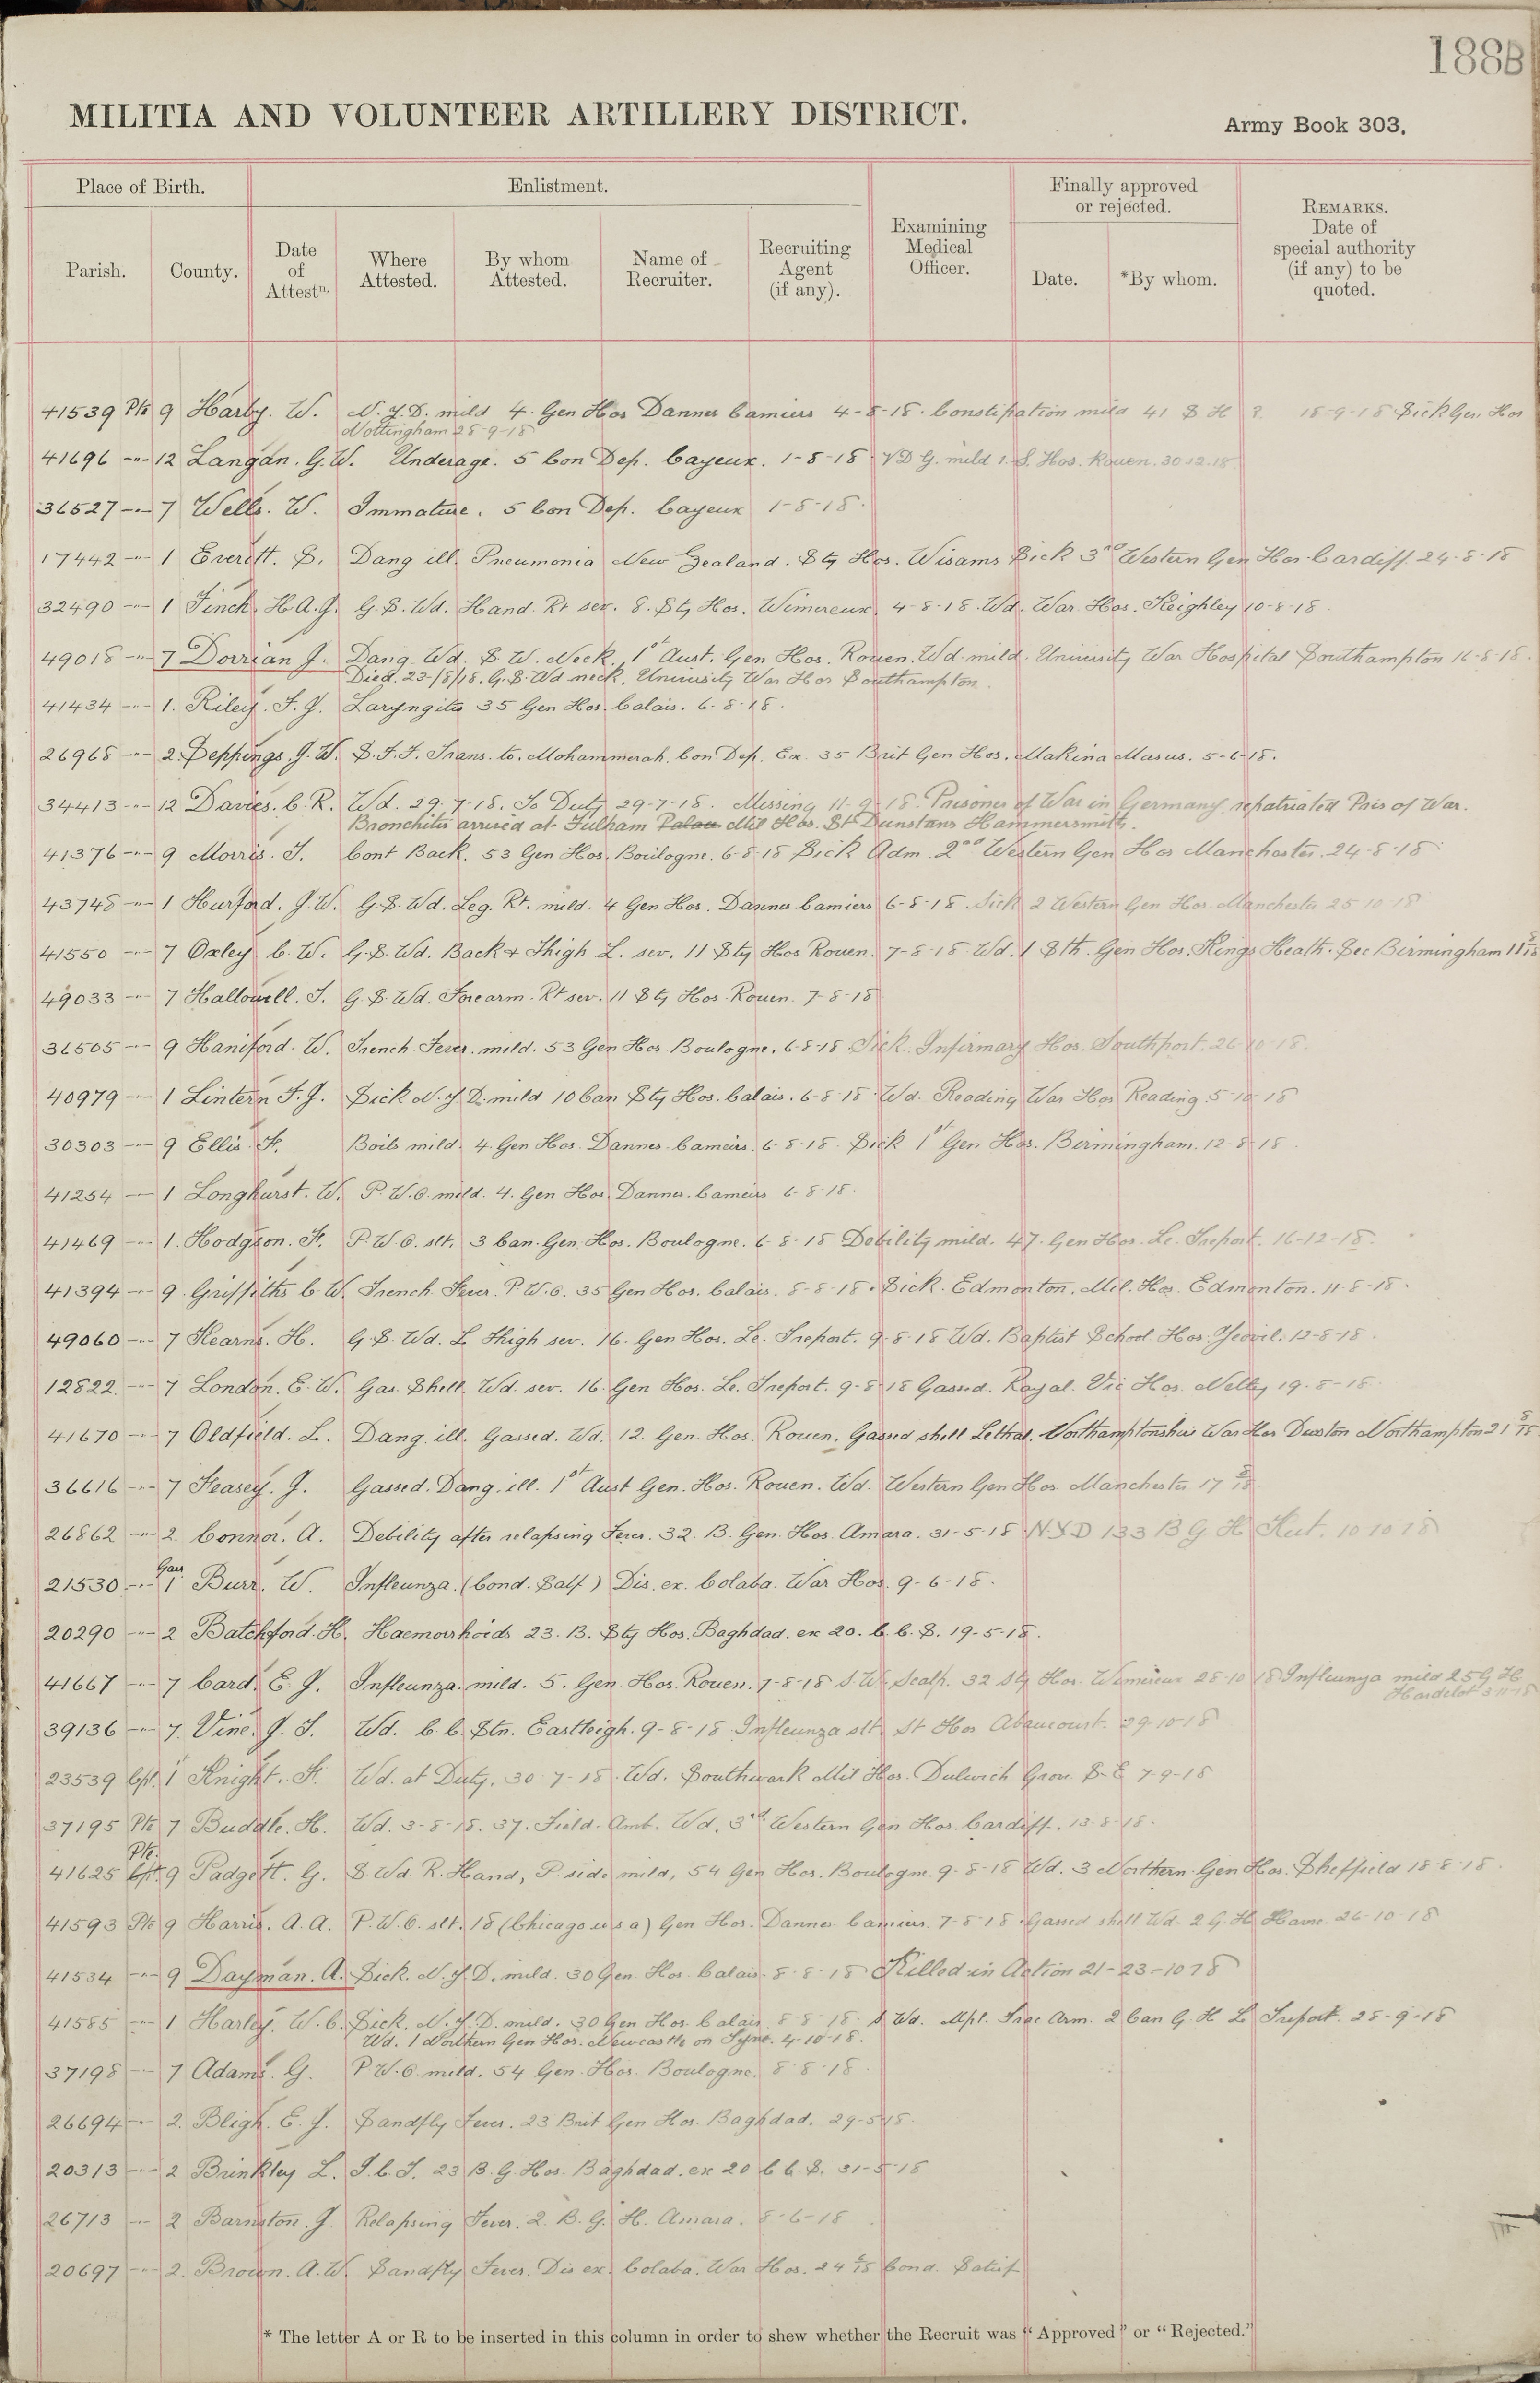 188B
MILITIA AND VOLUNTEER ARTILLERY DISTRICT.
Army Book 303.
Place of Birth.
Enlistment.
Finally approved
or rejected.
REMARKS.
Date of
special authority
(if any) to be
quoted.
Parish.
County.
Date
of
Attestn.
Where
Attested.
By whom
Attested.
Name of
Recruiter.
Recruiting
Agent
(if any).
Examining
Medical
Officer.
Date.
*By whom.
41539 Pte 9 Harby. W. N.Y.D. mild 4. Gen Hos Dannes Camiers 4-8-18. Constipation mild 41 S H 18-9-18 Sick Gen. Hos
Nottingham 28-9-18
41696 -"- 12 Langan. G.W. Underage. 5 Con Dep. Cayeux. 1-8-18. V D G. mild 1. S. Hos. Rouen. 30-12-18.
36527 -"- 7 Wells. W. Immature. 5 Con Dep. Cayeux 1-8-18.
17442 -"- 1 Everett. S. Dang ill. Pneumonia New Zealand. Sty Hos. Wisams Sick 3rd Western Gen Hos. Cardiff. 24-8-18
32490 -"- 1 Finch. H.A.J. G.S. Wd. Hand. Rt sev. 8. Sty Hos. Wimereux. 4-8-18. Wd. War. Hos. Keighley 10-8-18.
49018 -"- 7 Dorrian J. Dang. Wd. S.W. Neck. 1st Aust. Gen Hos. Rouen. Wd. mild. University War Hospital Southampton 16-8-18.
Died. 23/8/18. G.S. Wd neck. University War Hos Southampton.
41434 -"- 1. Riley. F.J. Laryngitis 35 Gen Hos. Calais. 6-8-18.
26968 -"- 2. Seppings. J.W. S.F.F. Trans. to. Mohammerah. Con Dep. Ex. 35 Brit Gen Hos. Makina Masus. 5-6-18.
34413 -"- 12 Davies. C.R. Wd. 29-7-18. To Duty 29-7-18. Missing 11-9-18. Prisoner of War in Germany repatriated Pris of War.
Bronchitis arrived at Fulham Palace Mil Hos. St Dunstans Hammersmith.
41376 -"- 9 Morris. T. Cont Back. 53 Gen Hos. Boulogne. 6-8-18 Sick Adm. 2nd Western Gen Hos Manchester. 24-8-18
43748 -"- 1 Hurford. J.W. G.S. Wd. Leg. Rt. mild. 4 Gen Hos. Dannes Camiers 6-8-18. Sick 2 Western Gen Hos. Manchester 25-10-18
41550 -"- 7 Oxley C.W. G.S. Wd. Back & Thigh L. sev. 11 Sty Hos Rouen. 7-8-18. Wd. 1 Sth. Gen Hos. Kings Heath. Sec Birmingham 11 8/18
49033 -"- 7 Hallowell. T. G.S. Wd. Forearm. Rt sev. 11 Sty Hos. Rouen. 7-8-18
36505 -"- 9 Haniford. W. Trench Fever. mild. 53 Gen Hos. Boulogne. 6-8-18 Sick. Infirmary Hos. Southport. 26-10-18.
40979 -"- 1 Lintern F.J. Sick N.Y.D. mild 10 Can Sty Hos. Calais. 6-8-18. Wd. Reading War Hos Reading. 5-10-18
30303 -"- 9 Ellis. F. Boils mild. 4. Gen Hos. Dannes. Cameirs. 6-8-18. Sick 1st Gen Hos. Birmingham. 12-8-18.
41254 -"- 1 Longhurst. W. P.U.O. mild. 4. Gen Hos. Dannes. Cameirs 6-8-18.
41469 -"- 1. Hodgson. F. P.U.O. slt. 3 Can. Gen Hos. Boulogne. 6-8-18 Debility mild. 47. Gen Hos. Le. Treport. 16-12-18.
41394 -"- 9. Griffiths C.W. Trench Fever. P.U.O. 35 Gen Hos. Calais. 8-8-18. Sick. Edmonton. Mil. Hos. Edmonton. 11-8-18.
49060 -"- 7 Kearns. H. G.S. Wd. L Thigh sev. 16. Gen Hos. Le. Treport. 9-8-18 Wd. Baptist School Hos. Yeovil. 12-8-18.
12822 -"- 7 London. E.W. Gas. Shell. Wd. sev. 16 Gen Hos. Le. Treport. 9-8-18 Gassed. Royal. Vic Hos. Netley 19-8-18.
41670 -"- 7 Oldfield. L. Dang. ill. Gassed. Wd. 12. Gen. Hos. Rouen. Gassed shell Lethal. Northamptonshire War Hos Duston Northampton 21 8/18
36616 -"- 7 Feasey. J. Gassed. Dang. ill. 1st Aust Gen. Hos. Rouen. Wd. Western Gen Hos Manchester 17 8/18
26862 -"- 2. Connor. A. Debility after relapsing Fever. 32. B. Gen. Hos. Amara. 31-5-18 N.Y.D 133 B G H Kut. 10 10 18
21530 -"- Garr 1 Burr. W. Infleunza. (Cond. Satf) Dis. ex. Colaba. War Hos. 9-6-18.
20290 -"- 2 Batchford. H. Haemorrhoids 23. B. Sty Hos. Baghdad. ex 20. C.C.S. 19-5-18.
41667 -"- 7 Card. E.J. Infleunza. mild. 5. Gen. Hos. Rouen. 7-8-18 S.W. Scalp. 32 Sty Hos. Wimereux 28-10-18 Infleunza mild 25 G H.
Hardelot 3-11-18
39136 -"- 7. Vine. J.T. Wd. C.C. Stn. Eastleigh. 9-8-18. Infleunza slt. St Hos Abancourt. 29-10-18
23539 Cpl. 1st Knight. F. Wd. at Duty. 30-7-18. Wd. Southwark Mil Hos. Dulwich Grove S.E 7-9-18
37195 Pte 7 Buddle. H. Wd. 3-8-18. 37. Field. Amb. Wd. 3rd Western Gen Hos. Cardiff. 13-8-18.
Pte.
41625 Cpl. 9 Padgett. G. S Wd. R. Hand, P side mild, 54 Gen Hos. Boulogne. 9-8-18 Wd. 3 Northern Gen Hos. Sheffield 18-8-18.
41593 Pte 9 Harris. A.A. P.U.O. slt. 18 (Chicago u s a) Gen Hos. Dannes Camiers. 7-8-18. Gassed shell Wd. 2 G.H Havre. 26-10-18
41534 -"- 9 Dayman. A. Sick. N.Y.D. mild. 30 Gen. Hos. Calais. 8-8-18 Killed in Action 21-23-10 18
41585 -"- 1 Harley. W.C. Sick. N.Y.D. mild. 30 Gen Hos. Calais 8-8-18. S Wd. Mpl. Frac Arm. 2 Can G. H Le Treport. 28-9-18
Wd. 1 Northern Gen Hos. Newcastle on Tyne. 4-10-18.
37198 -"- 7 Adams. G. P.U.O. mild. 54 Gen. Hos. Boulogne. 8-8-18.
26694 -"- 2. Bligh. E.J. Sandfly Fever. 23 Brit Gen Hos. Baghdad. 29-5-18.
20313 -"- 2 Brinkley L. I.C.T. 23 B.G. Hos. Baghdad. ex 20 C C.S. 31-5-18
26713 -"- 2 Barnston. J. Relapsing Fever. 2. B.G.H. Amara. 8-6-18
20697 -"- 2. Brown. A.W. Sandfly Fever. Dis ex. Colaba. War Hos. 24 5/18 Cond. Satisf
* The letter A or R to be inserted in this column in order to shew whether the Recruit was "Approved" or "Rejected."